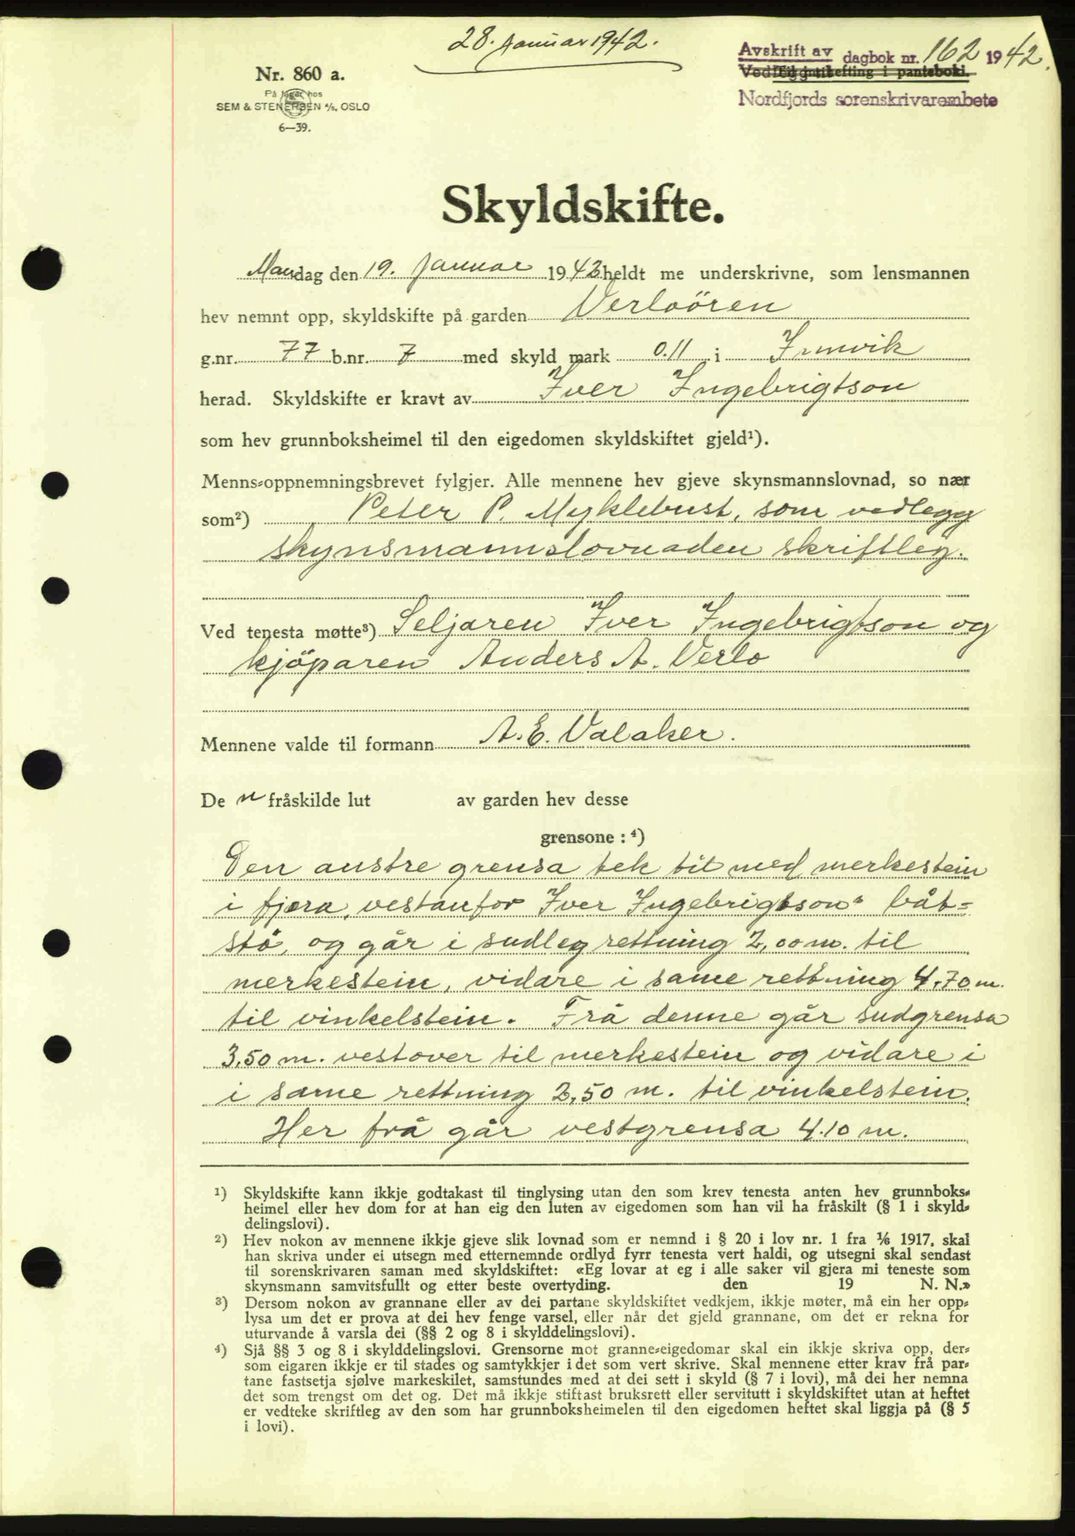 28. januar 1942.
Avskrift av dagbok nr. 162 1942.
Nordfjords sorenskrivarembete
Nr. 860 a.
På lager hos
SEM & STENERSEN A/S, OSLO
6—39.
Skyldskifte.
Mandag den 19. januar 1942 heldt me underskrivne, som lensmannen
hev nemnt opp, skyldskifte på garden Verloören
g.nr. 77 b.nr. 7 med skyld mark 0.11 i Innvik
herad. Skyldskifte er kravt av Iver Ingebrigtson
som hev grunnboksheimel til den eigedomen skyldskiftet gjeld¹).
Menns-oppnemningsbrevet fylgjer. Alle mennene hev gjeve skynsmannslovnad, so nær
som²) Peter P. Myklebust, som vedlegg
skynsmannslovnaden skriftleg.
Ved tenesta møtte³) Seljaren Iver Ingebrigtson og
kjöparen Anders A. Verlo
Mennene valde til formann A. E. Valaker.
De n fråskilde lut av garden hev desse
grensone : ⁴)
Den austre grensa tek til med merkestein
i fjøra, vestanfor Iver Ingebrigtson" båt-
stø, og går i sudleg rettning 2,00 m. til
merkestein, vidare i same rettning 4,70 m.
til vinkelstein. Frå denne går sudgrensa
3,50 m. vestover til merkestein og vidare i
i same rettning 2,50 m. til vinkelstein.
Her frå går vestgrensa 4.10 m.
¹) Skyldskifte kann ikkje godtakast til tinglysing utan den som krev tenesta anten hev grunnboks-
heimel eller hev dom for at han eig den luten av eigedomen som han vil ha fråskilt (§ 1 i skyld-
delingslovi).
²) Hev nokon av mennene ikkje gjeve slik lovnad som er nemnd i § 20 i lov nr. 1 fra ⅙ 1917, skal
han skriva under ei utsegn med etternemnde ordlyd fyrr tenesta vert haldi, og utsegni skal sendast
til sorenskrivaren saman med skyldskiftet: «Eg lovar at eg i alle saker vil gjera mi teneste som
skynsmann samvitsfullt og etter beste overtyding. den 19 N. N.»
³) Dersom nokon av grannane eller av dei partane skyldskiftet vedkjem, ikkje møter, må ein her opp-
lysa um det er prova at dei hev fenge varsel, eller når det gjeld grannane, om det er rekna for
uturvande å varsla dei (§§ 2 og 8 i skylddelingslovi).
⁴) Sjå §§ 3 og 8 i skylddelingslovi. Grensorne mot granne-eigedomar skal ein ikkje skriva opp, der-
som eigaren ikkje er til stades og samtykkjer i det som vert skrive. Skal mennene etter krav frå par-
tane fastsetja sjølve markeskilet, samstundes med at dei sett i skyld (§ 7 i lovi), må dei her nemna
det som trengst om det og. Det må ikkje stiftast bruksrett eller servitutt i skyldskiftet utan at heftet
er vedteke skriftleg av den som har grunnboksheimelen til den eigedomen heftet skal liggja på (§ 5
i lovi).